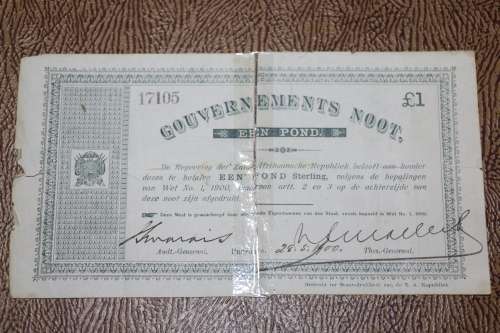 17105
£1
GOUVERNEMENTS NOOT,
EEN POND.
De Regeering der Zuid Afrikaansche Republiek belooft aan houder
dezes te betalen EEN POND Sterling, volgens de bepalingen
van Wet No. 1, 1900, waarvan artt. 2 en 3 op de achterzijde van
deze noot zijn afgedrukt.
Deze Noot is gewaarborgd door Eigendommen van den Staat, vermeld in Wet No. 1, 1900.
Marais
28.5.1900.
Audt.-Generaal.
Thes.-Generaal.
Gedrukt ter Staatsdrukkerij van de Z. A. Republiek.